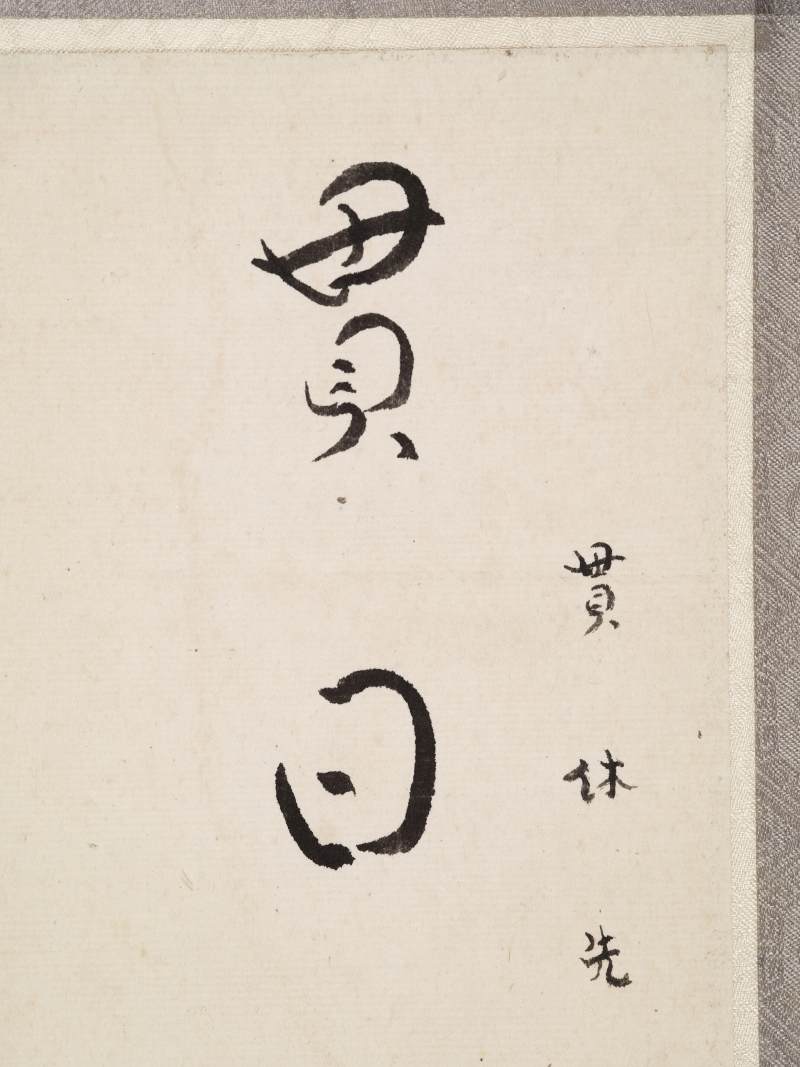 貫休先
貫日